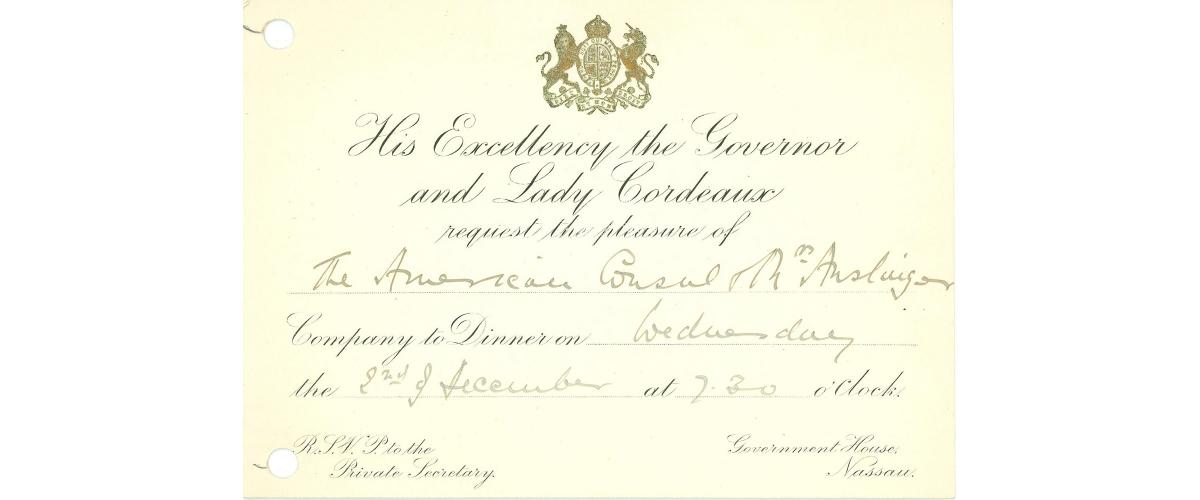 His Excellency the Governor
and Lady Cordeaux
request the pleasure of
The American Consul & Mrs Anslinger
Company to Dinner on Wednesday
the 2nd of December at 7.30 o'Clock.
R.S.V.P. to the
Private Secretary.
Government House,
Nassau.